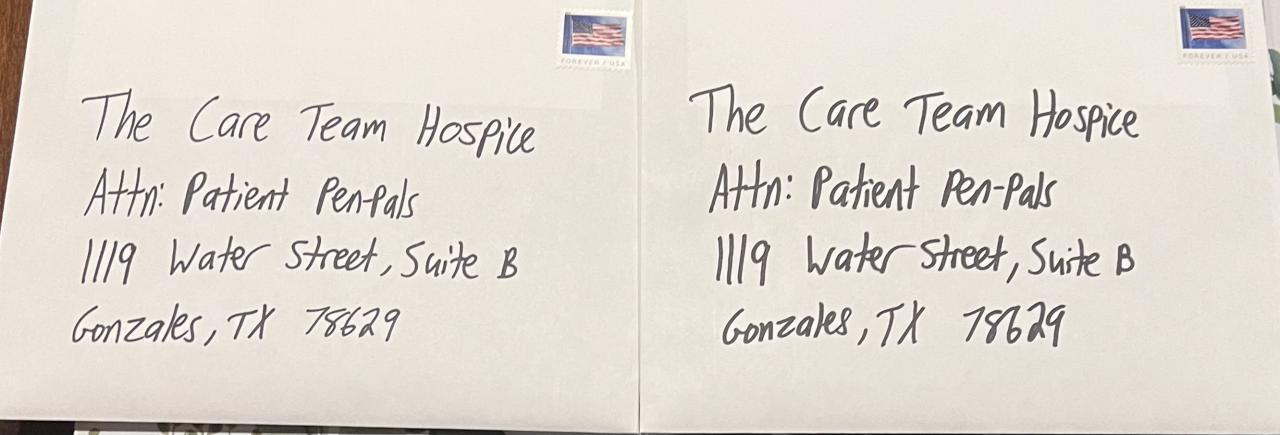 FOREVER / USA
The Care Team Hospice
Attn: Patient Pen-Pals
1119 Water Street, Suite B
Gonzales, TX 78629
FOREVER / USA
The Care Team Hospice
Attn: Patient Pen-Pals
1119 Water Street, Suite B
Gonzales, TX 78629